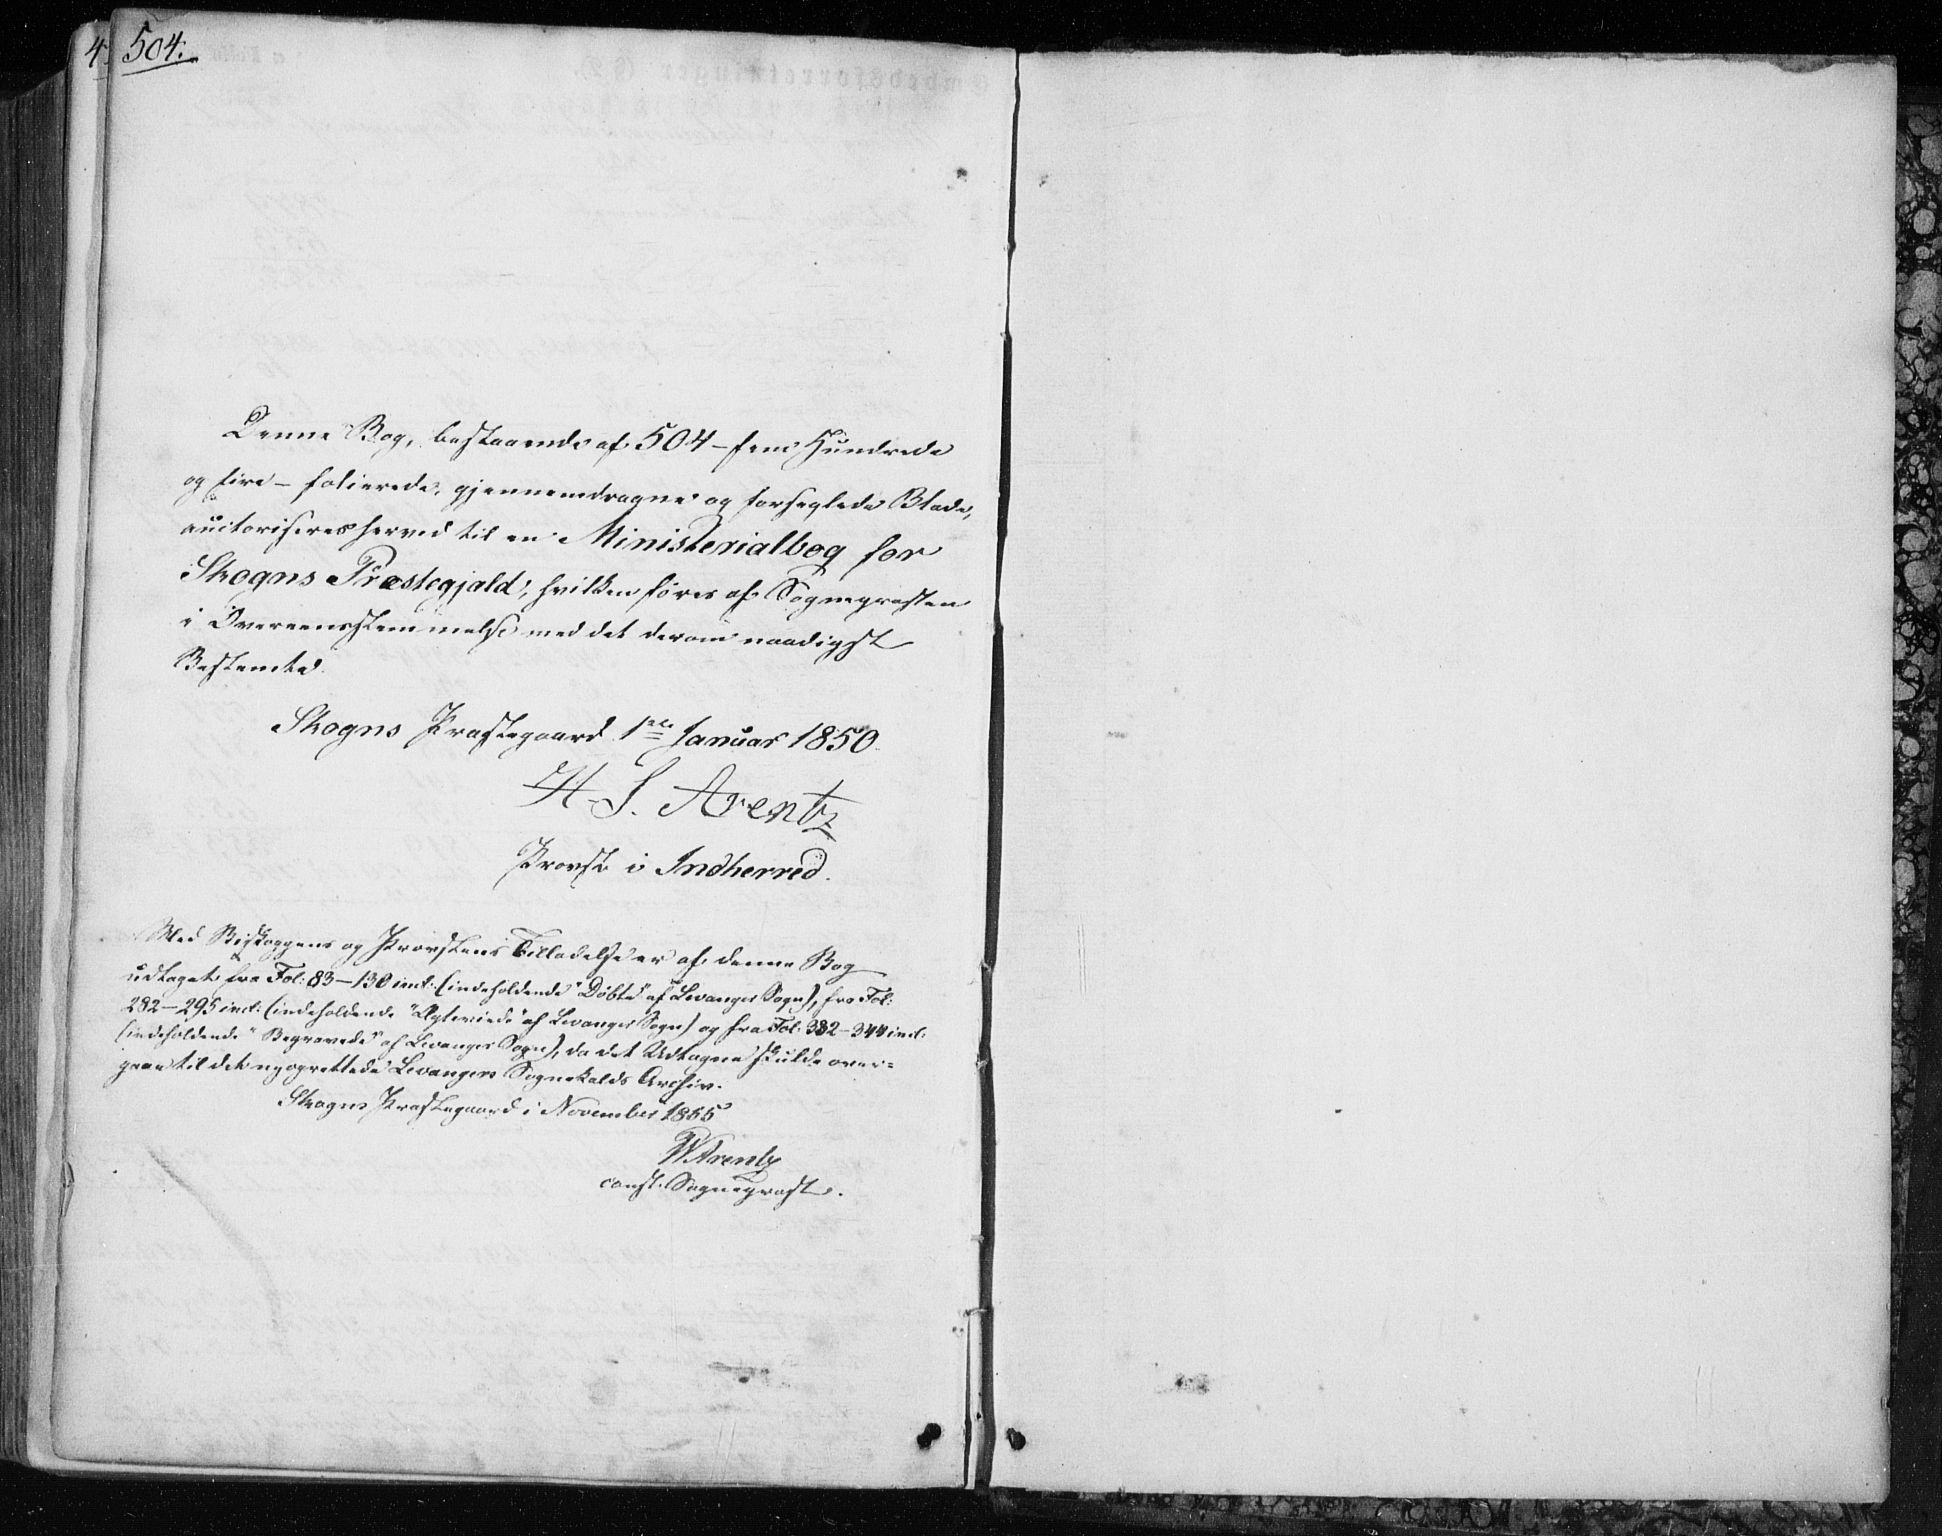 504.
Denne Bog, bestaaende af 504 – fem Hundrede
og fire – folierede, gjennemdragne og forseglede Blade,
auctoriseres herved til en Ministerialbog for
Skogns Præstegjæld, hvilken føres af Sognepræsten
i Overeensstemmelse med det derom naadigst
Bestemte.
Skogns Præstegaard 1ste Januar 1850.
H. S. Arentz
Provst i Indherred.
Med Biskoppens og Provstens Tilladelse er af denne Bog
udtaget fra Fol: 83–130 incl: (indeholdende "Døbte" af Levanger Sogn), fra Fol:
282–295 incl: (indeholdende "Ægteviede" af Levanger Sogn) og fra Fol: 332–344 incl:
(indeholdende "Begravede" af Levanger Sogn), da det Udtagne skulde over-
gaae til det nyoprettede Levangers Sognekalds Archiv.
Skogns Præstegaard i November 1855
W Arentz
const. Sognepræst.